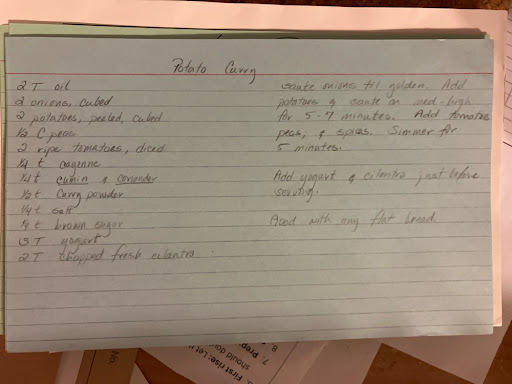 Potato Curry
2 T oil
2 onions, cubed
2 potatoes, peeled, cubed
1/2 C peas
2 ripe tomatoes, diced
1/4 t cayenne
1/4 t cumin & coriander
1/2 t Curry powder
1/4 t salt
1/4 t brown sugar
3 T yogurt
2 T chopped fresh cilantro
saute onions til golden. Add
potatoes & saute on med-high
for 5-7 minutes. Add tomatoes
peas, & spices. Simmer for
5 minutes.
Add yogurt & cilantro just before
serving.
Good with any flat bread
No.
First rise: Let
7. Prep
should do
8.